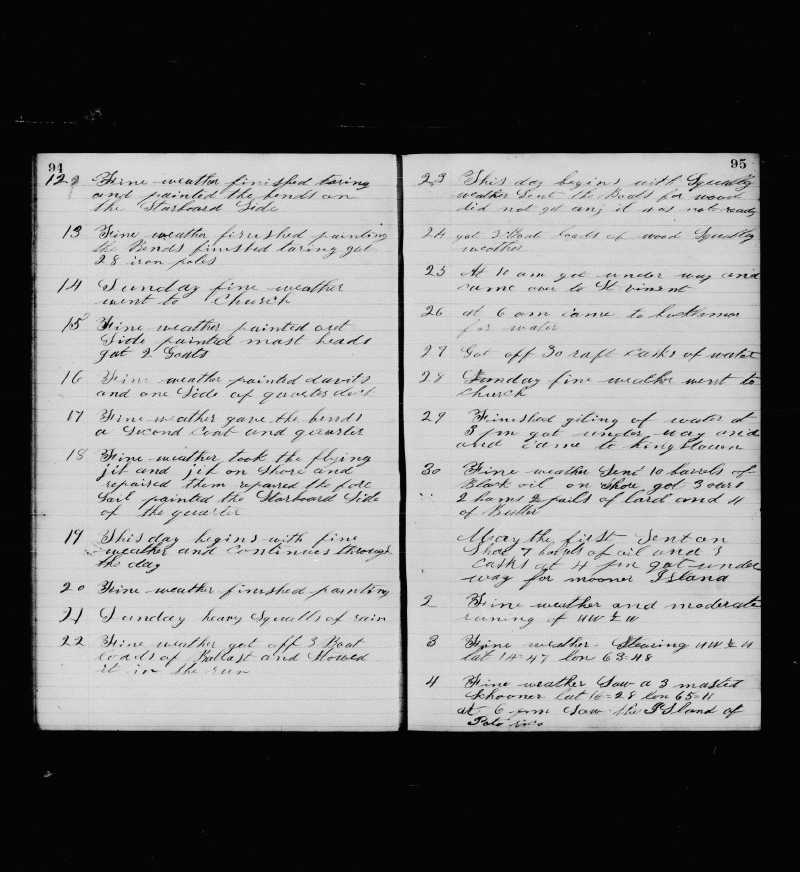 94
12 Fine weather finished taring
and painted the bends on
the Starboard Side
13 Fine weather finished painting
the Bends finished taring got
28 iron poles
14 Sunday fine weather
went to Church
15 Fine weather painted out
Side painted mast heads
got 2 Goats
16 Fine weather painted davits
and one Side of quarter deck
17 Fine weather gave the bends
a Second Coat and quarter
18 Fine weather took the flying
jib and jib on Shore and
repaired them repaired the fore
Sail painted the Starboard Side
of the quarter
19 This day begins with fine
weather and Continues through
the day
20 Fine weather finished painting
21 Sunday heavy Squalls of rain
22 Fine weather got off 3 Boat
loads of Ballast and Stowed
it in the run
95
23 This day begins with Squally
weather Sent the Boats for wood
did not get any it was not ready
24 got 3 Boat loads of wood Squally
weather
25 At 10 am got under way and
came over to St vinsent
26 at 6 am came to
for water
27 Got off 30 raft Casks of water
28 Sunday fine weather went to
Church
29 Finished giting of water at
3 pm got under way and
and came to Kingstown
30 Fine weather Sent 10 barrels of
Black oil on Shore got 3 oars
2 hams 2 pails of lard and 4
of Butter
May the first Sent on
Shore 7 barrels of oil and 3
Casks at 4 pm got under
way for mooner Island
2 Fine weather and moderate
runing of NW ½ W
3 Fine weather Stearing NW ½ W
lat 14=47 lon 63=48
4 Fine weather Saw a 3 masted
Schooner lat 16=28 lon 65=11
at 6 pm Saw the ISland of
Poto rico